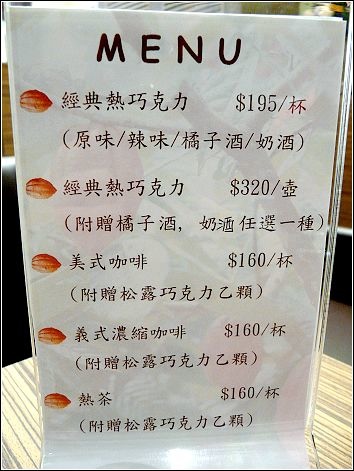 MENU
經典熱巧克力 $195/杯
(原味/辣味/橘子酒/奶酒)
經典熱巧克力 $320/壺
(附贈橘子酒, 奶酒任選一種)
美式咖啡 $160/杯
(附贈松露巧克力乙顆)
義式濃縮咖啡 $160/杯
(附贈松露巧克力乙顆)
熱茶 $160/杯
(附贈松露巧克力乙顆)